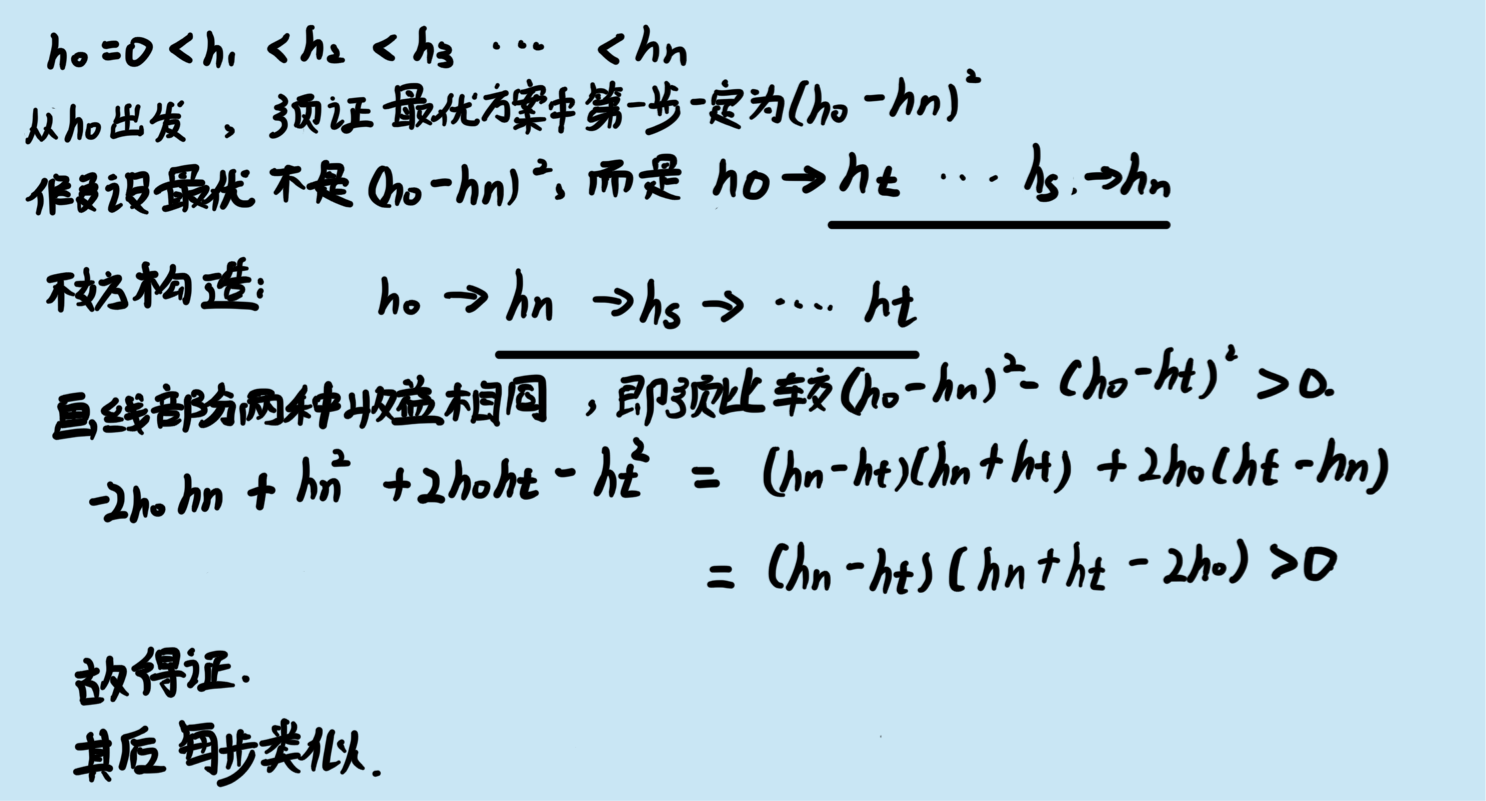 h₀=0 < h₁ < h₂ < h₃ ··· < hn
从h₀出发，须证最优方案中第一步一定为(h₀-hn)²
假设最优不是(h₀-hn)²，而是 h₀→ht ··· hs→hn
不妨构造: h₀ → hn → hs → ···· ht
画线部分两种收益相同，即须比较(h₀-hn)²-(h₀-ht)²>0.
-2h₀hn + hn² + 2h₀ht - ht² = (hn-ht)(hn+ht) + 2h₀(ht-hn)
= (hn-ht)(hn+ht-2h₀) >0
故得证.
其后每步类似.